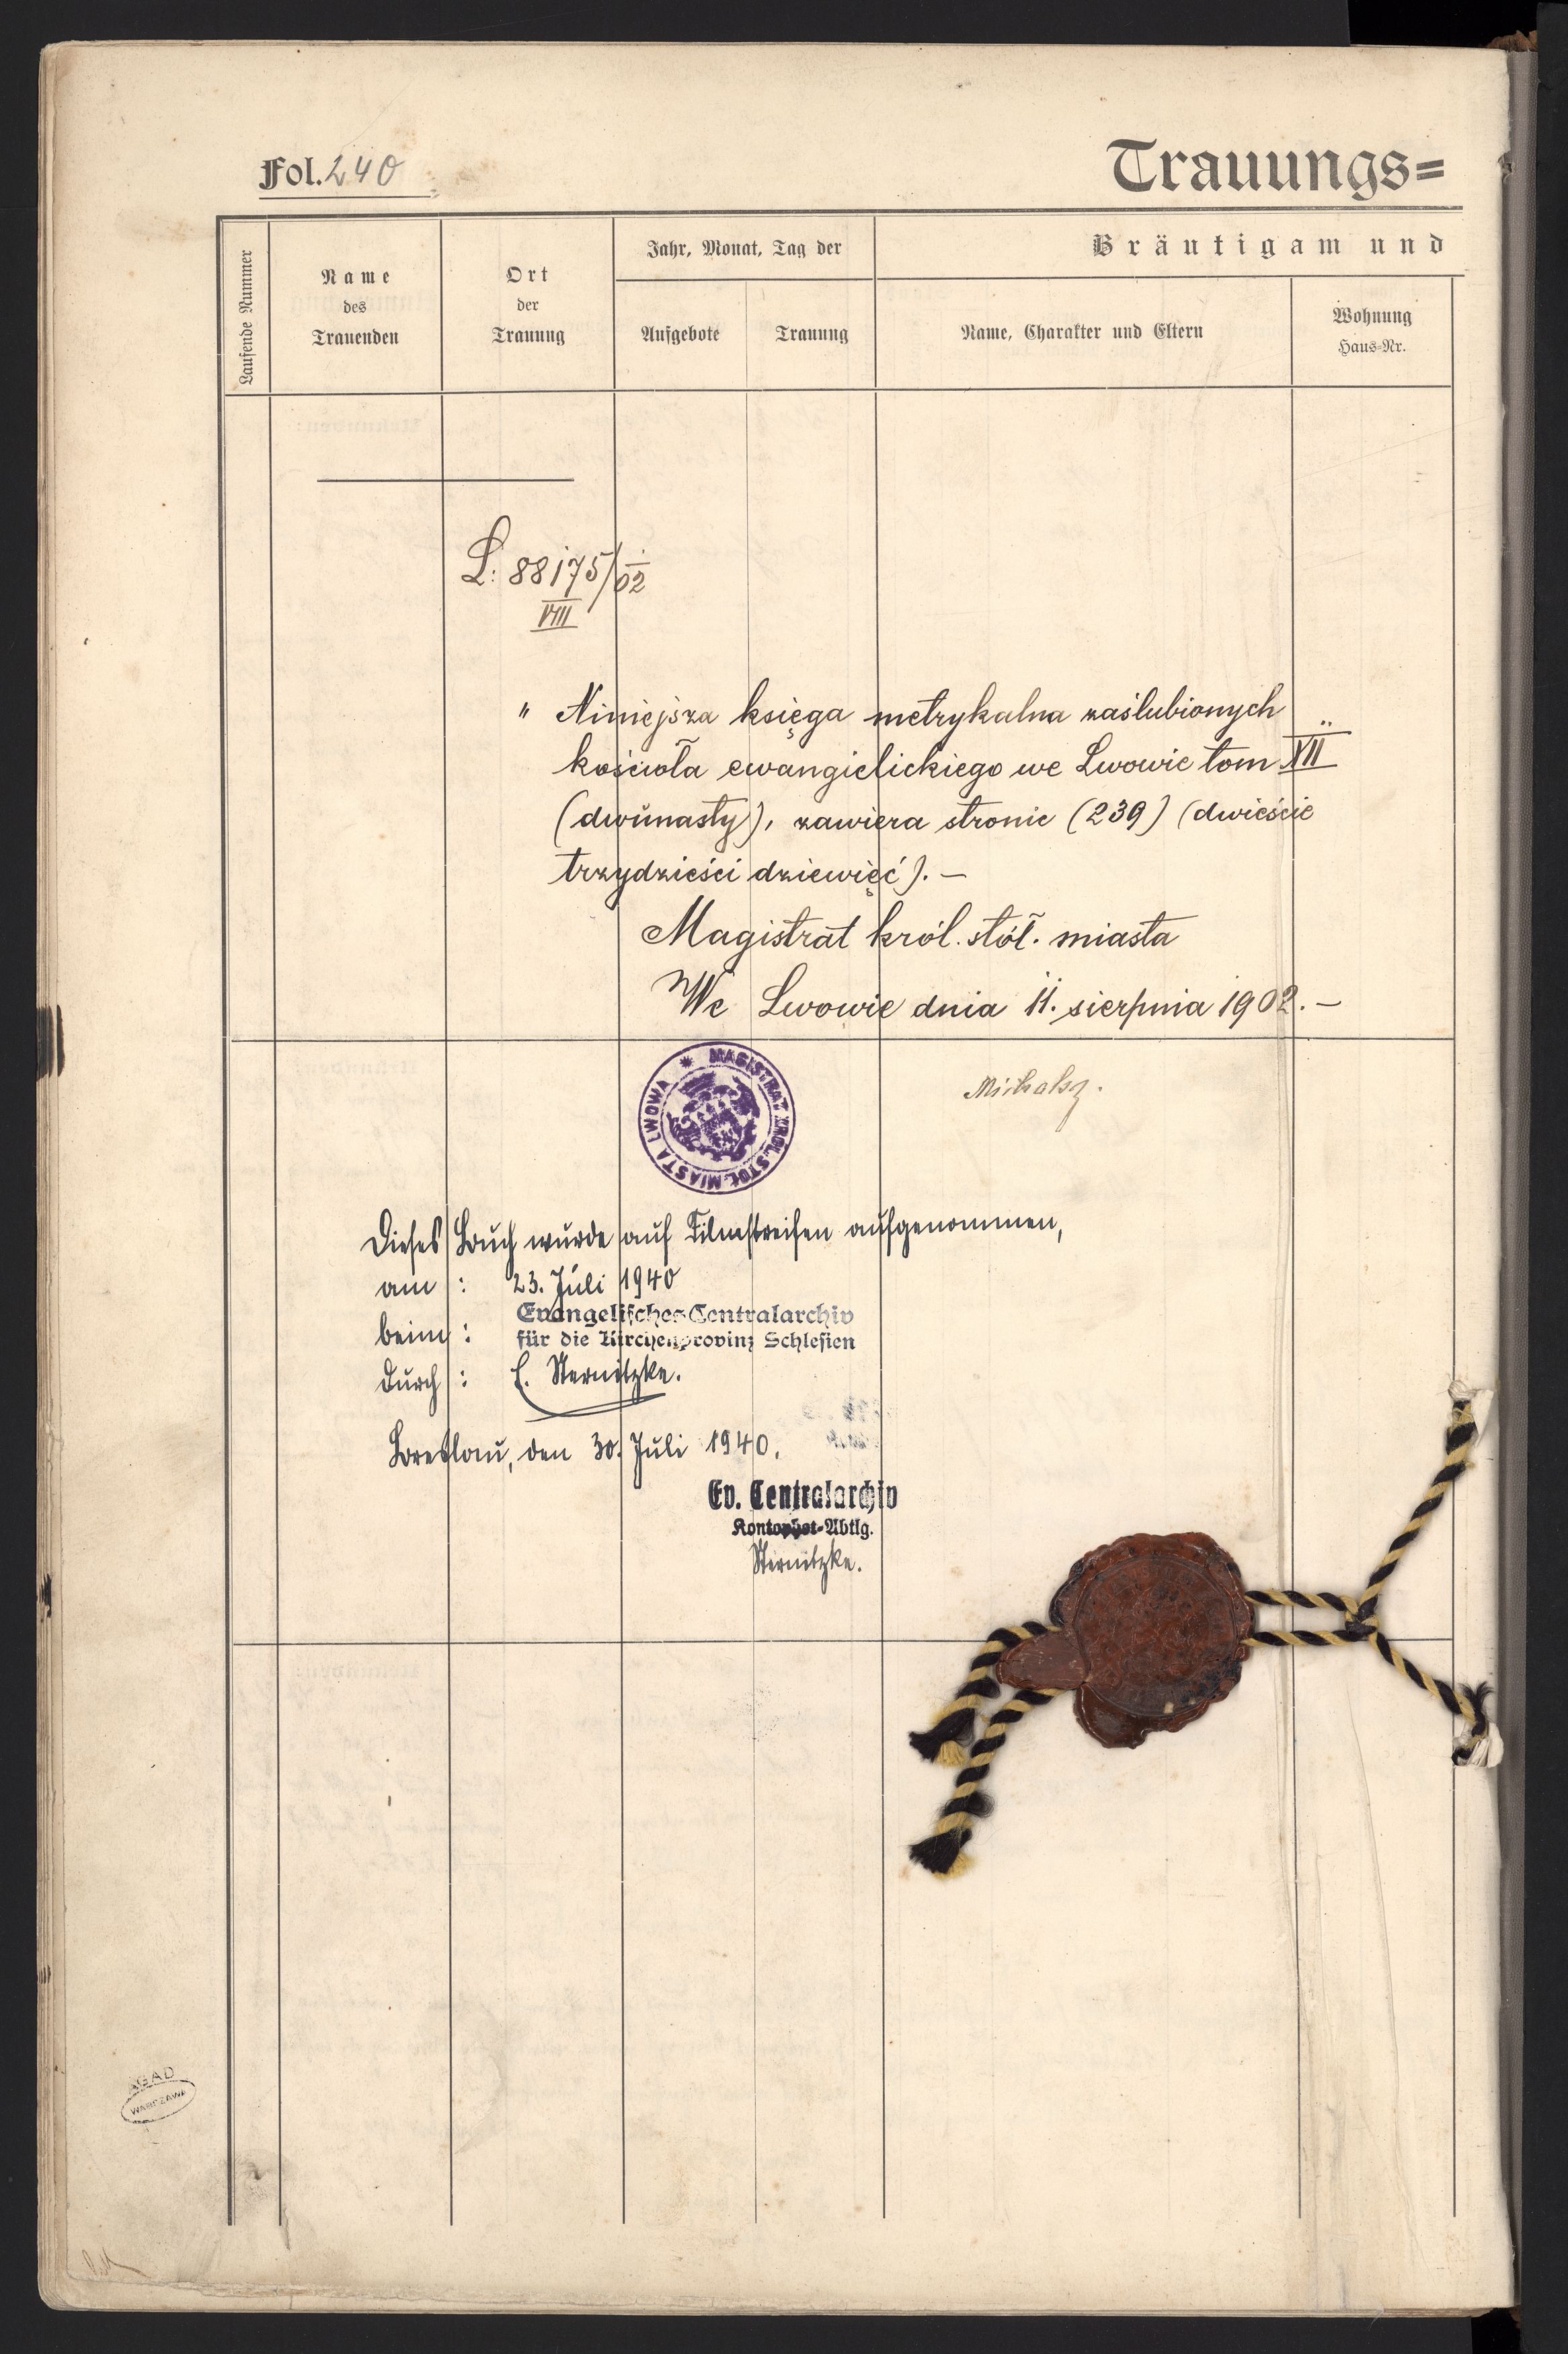 Fol. 240
Trauungs=
Laufende Nummer
Name
des
Trauenden
Ort
der
Trauung
Jahr, Monat, Tag der
Aufgebote
Trauung
Bräutigam und
Name, Charakter und Eltern
Wohnung
Haus-Nr.
L: 88175/02
VIII
" Niniejsza księga metrykalna zaślubionych
kościoła ewangielickiego we Lwowie tom XII
(dwunasty), zawiera stronic (239) (dwieście
trzydzieści dziewięć). —
Magistrat król. stół. miasta
We Lwowie dnia 11. sierpnia 1902. —
* MAGISTRAT KRÓL. STOŁ. MIASTA LWOWA
Dieses Buch wurde auf Filmstreifen aufgenommen,
am : 23. Juli 1940
beim : Evangelisches Centralarchiv
für die Kirchenprovinz Schlesien
durch : E. Sternitzke.
Breslau, den 30. Juli 1940.
Ev. Centralarchiv
Kontophot-Abtlg.
Sternitzke.
AGAD
WARSZAWA